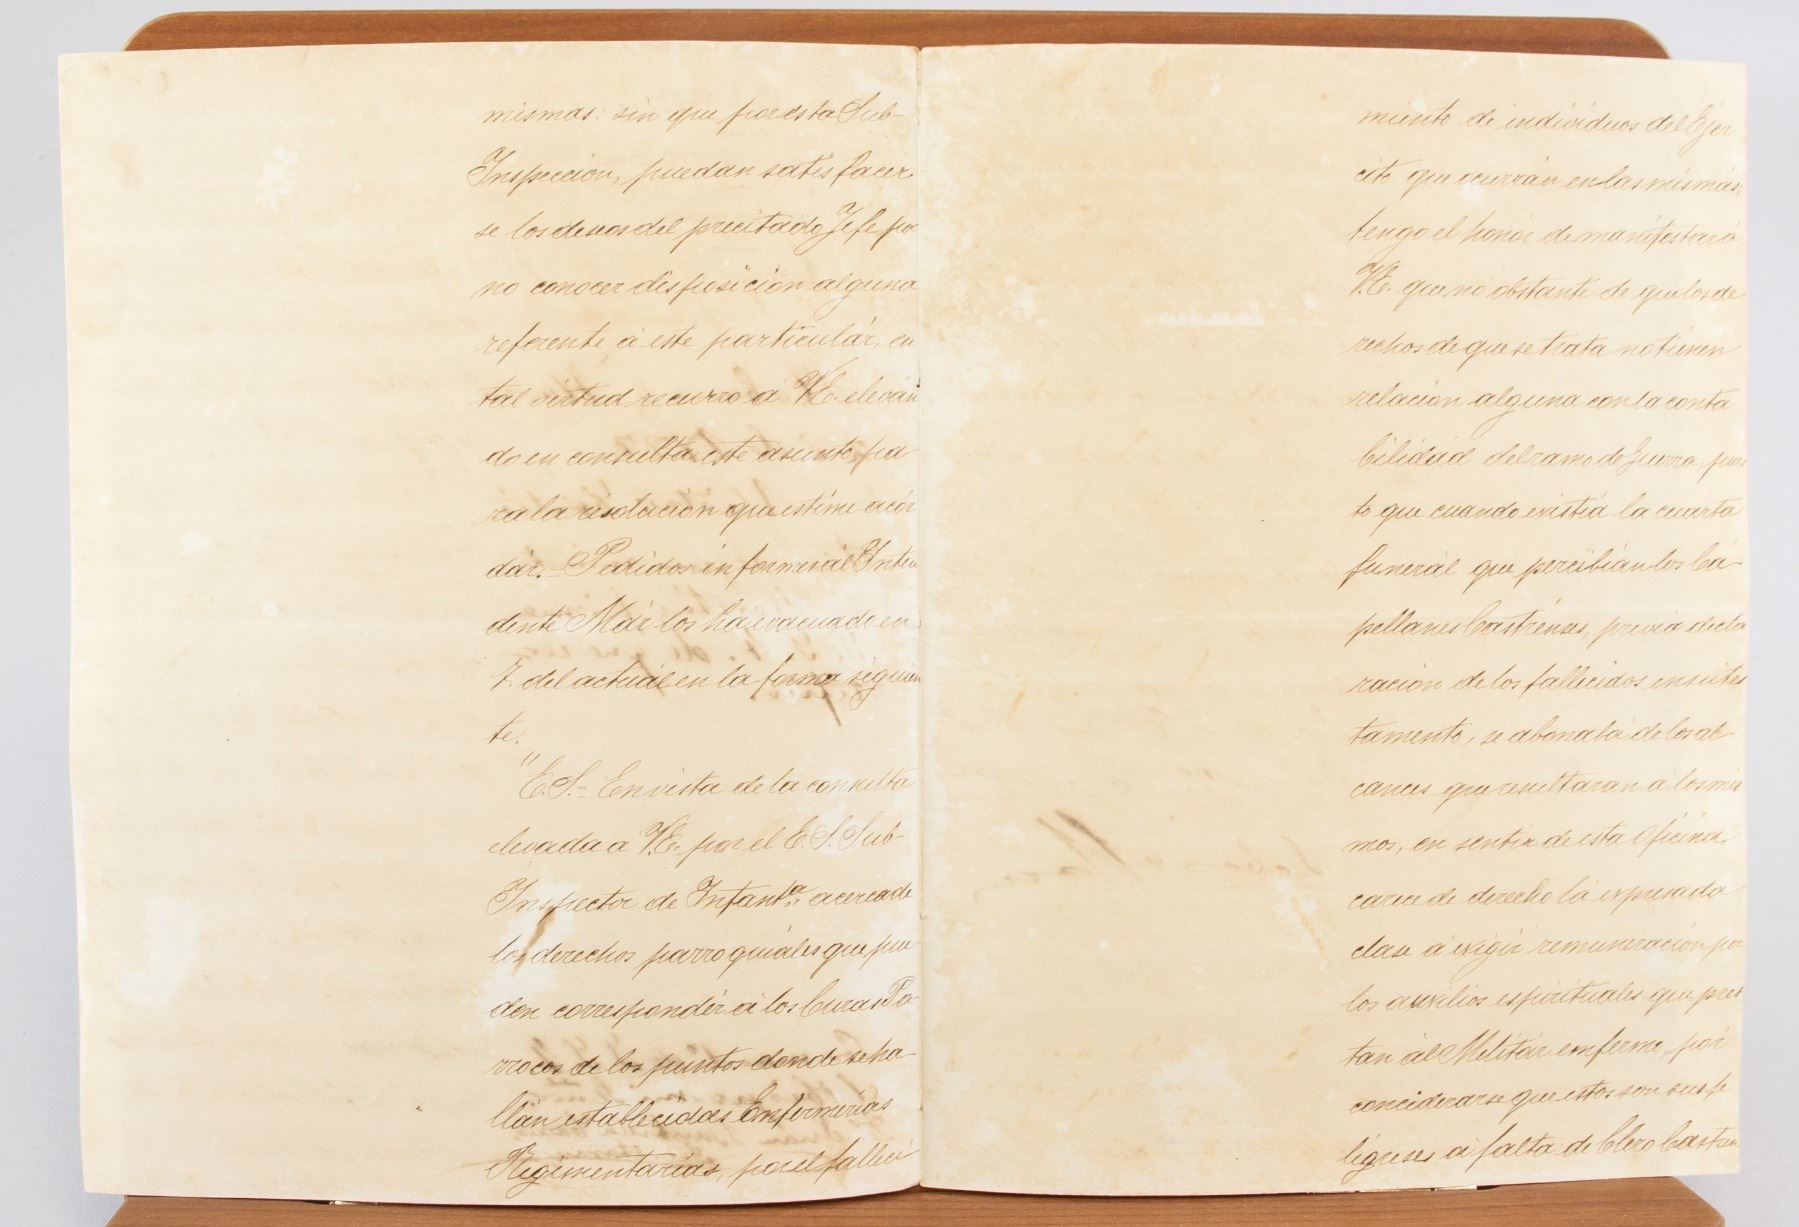 mismas: sin que por esta Sub-
Inspeccion, puedan satisfacer
se los deseos del precitado Jefe po
no conocer disposicion alguna
referente á este particulár, en
tal virtud recurro á V.E. eleván
do en consulta este asunto pa
ra la résolución que estime acór
dár.= Pedidos informes al Inten
dente Mór los ha evacuado en
7. del actuál en la forma siguien
te.
"E.S.= En vista de la consulta
elevada a V.E. por el E.S. Sub-
Inspector de Infantª. acerca de
los derechos parroquiáles que pue
den correspondér á los Curas Pá-
rrocos de los puntos donde se ha
llán establecidas Enfermerias
Regimentarias, por el falleci
miento de individuos del Ejér
cito que ocurrán en las mismas:
tengo el honór de manifestár á
V.E. que no obstante de que los de
rechos de que se trata no tienen
relacion alguna con la conta
bilidad del ramo de Guerra, pues
to que cuando existía la cuarta
funerál que percibián los Ca-
pellanes Castrénses, previa decla
racion de los fallecidos en su tes
tamento, se abonaba de los al
cances que resultaran á los mis
mos, en sentir de esta Oficina,
carece de derecho la espresada
clase á exigir remuneración por
los auxilios espirituales que pres
tan ál Militár enfermo, por
conciderarse que estos son sus fe
ligreses á falta de Clero Castren